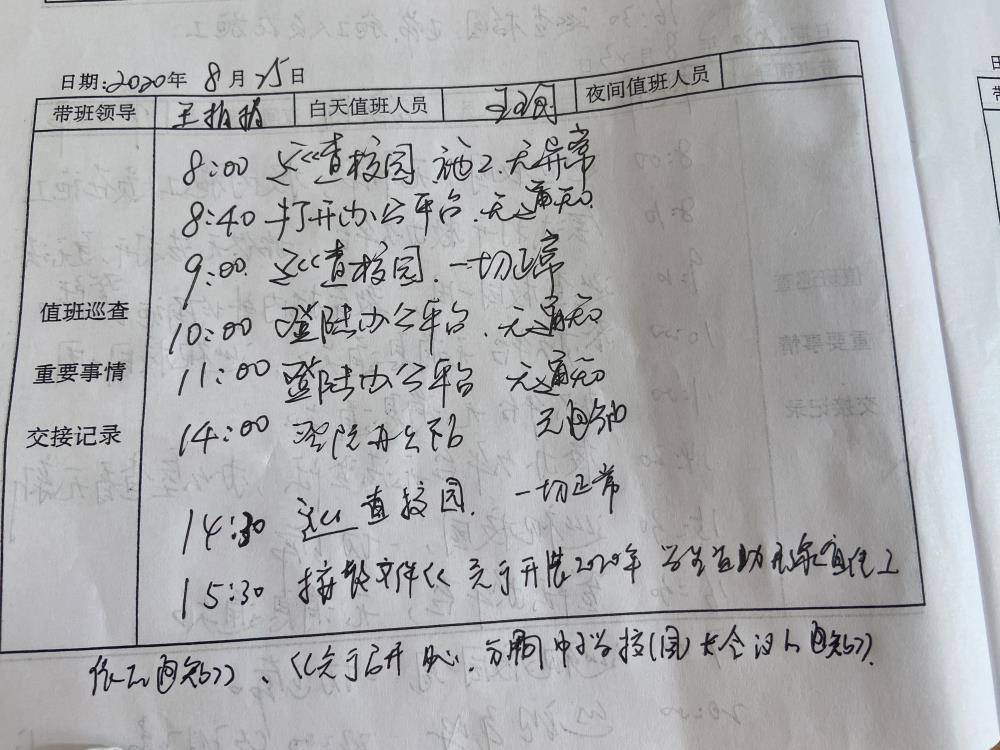 日期:2020年 8月25日
带班领导 白天值班人员 夜间值班人员
8:00 巡查校园.施工.无异常
8:40 打开办公平台.无通知.
9:00. 巡查校园.一切正常
值班巡查
10:00 登陆办公平台.无通知
重要事情
11:00 登陆办公平台 无通知
交接记录
14:00 登陆办公平台 无通知
14:30 巡查校园. 一切正常
15:30 接收文件《关于开展2020年 学生资助 宣传工
作的通知》、《关于召开 中小学校(园)长会议的通知》.